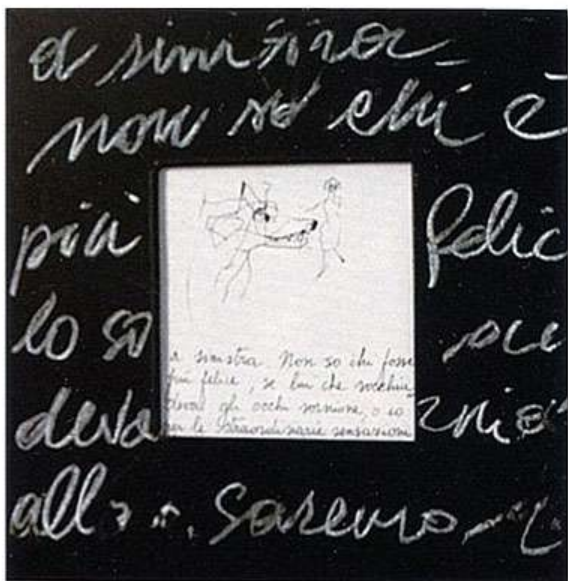 a sinistra
non so chi è
più felic
lo so
deva
all saremo
a sinistra. Non so chi fosse
più felice, se lui che socchiu
deva gli occhi sornione, o io
per le straordinarie sensazioni